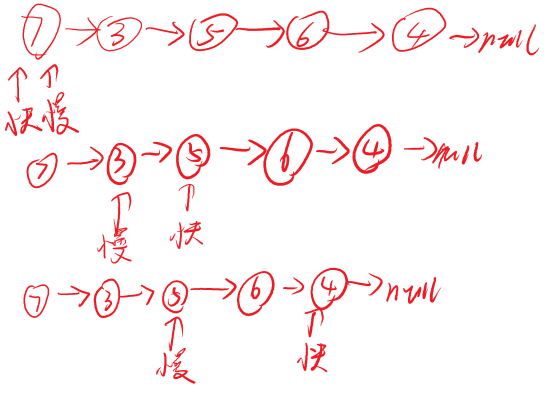 7 → 3 → 5 → 6 → 4 → null
快 慢
7 → 3 → 5 → 6 → 4 → null
慢 快
7 → 3 → 5 → 6 → 4 → null
慢 快